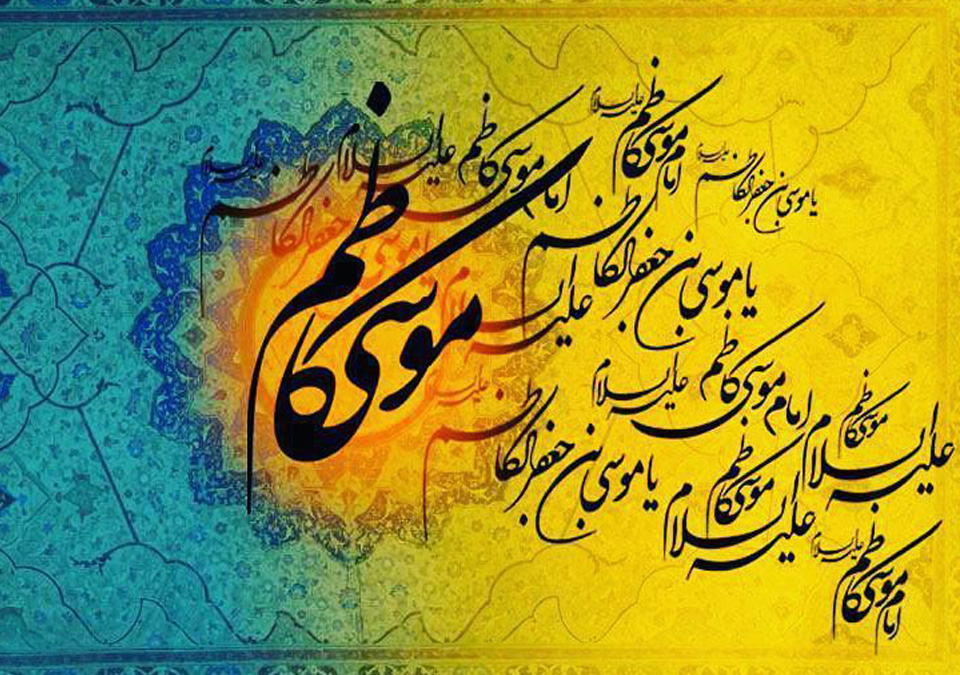 علیه السلام
امام موسی کاظم
یا موسی بن جعفر الکاظم
علیه السلام
امام موسی کاظم
علیه السلام
علیه السلام
یا موسی بن جعفر الکاظم
موسی کاظم
علیه السلام
امام موسی کاظم
علیه السلام
موسی کاظم
علیه السلام
یا موسی بن جعفر الکاظم
موسی کاظم
علیه السلام
علیه السلام
امام موسی کاظم